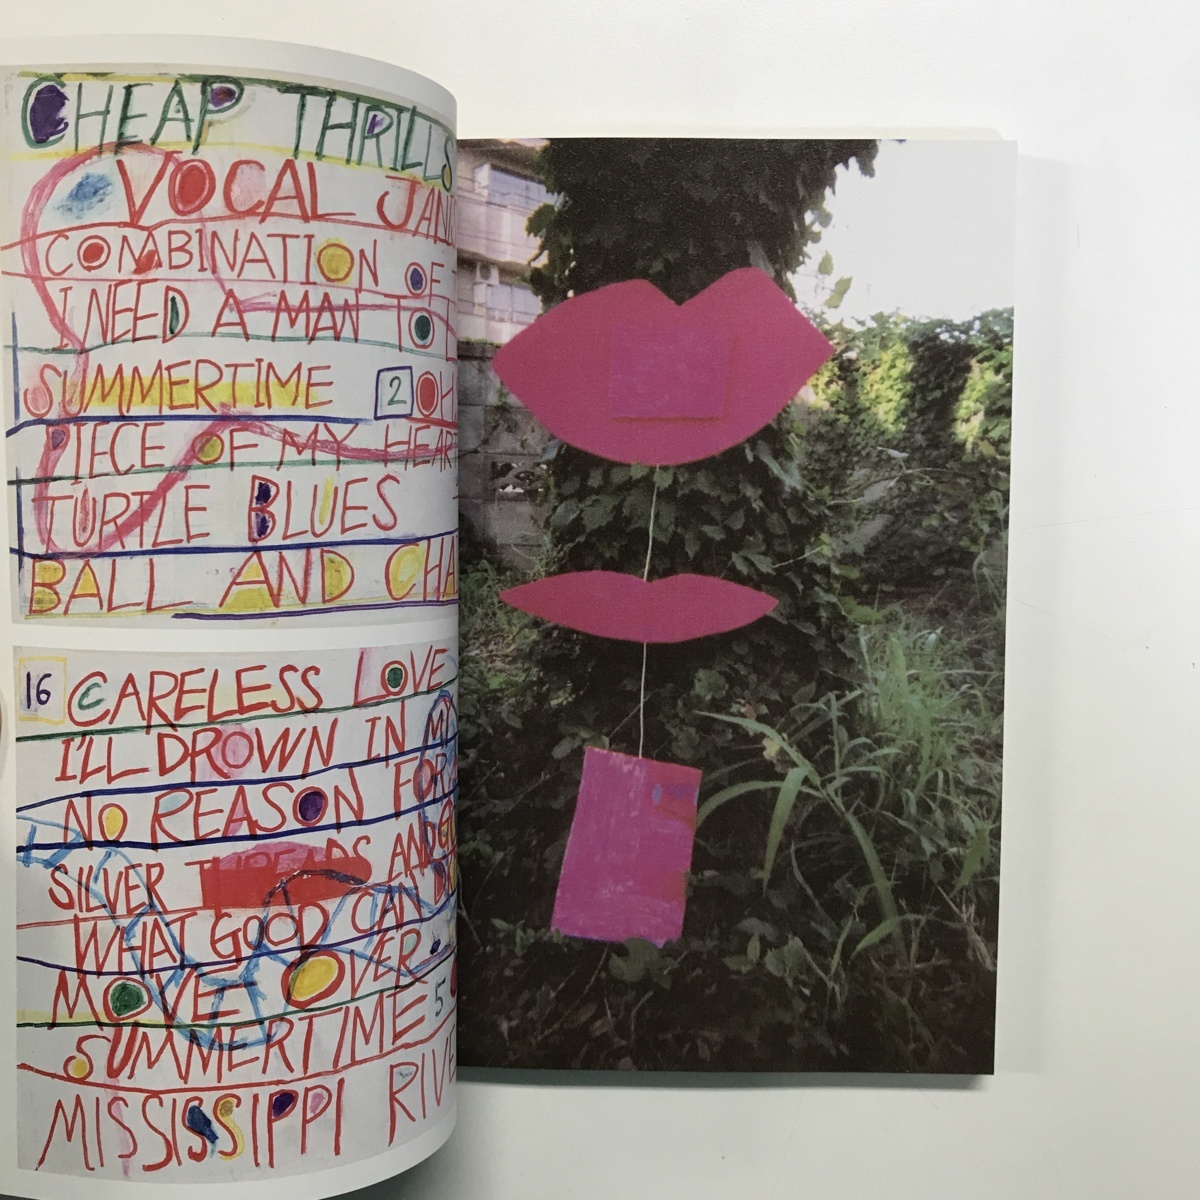 CHEAP THRILLS
VOCAL JAN
COMBINATION OF
I NEED A MAN TO
SUMMERTIME 2 OH
PIECE OF MY HEAR
TURTLE BLUES
BALL AND CHA
16 CARELESS LOVE
I'LL DROWN IN MY
NO REASON FOR
SILVER THREADS AND GO
WHAT GOOD CAN DR
MOVE OVER
SUMMERTIME 5
MISSISSIPPI RIVE